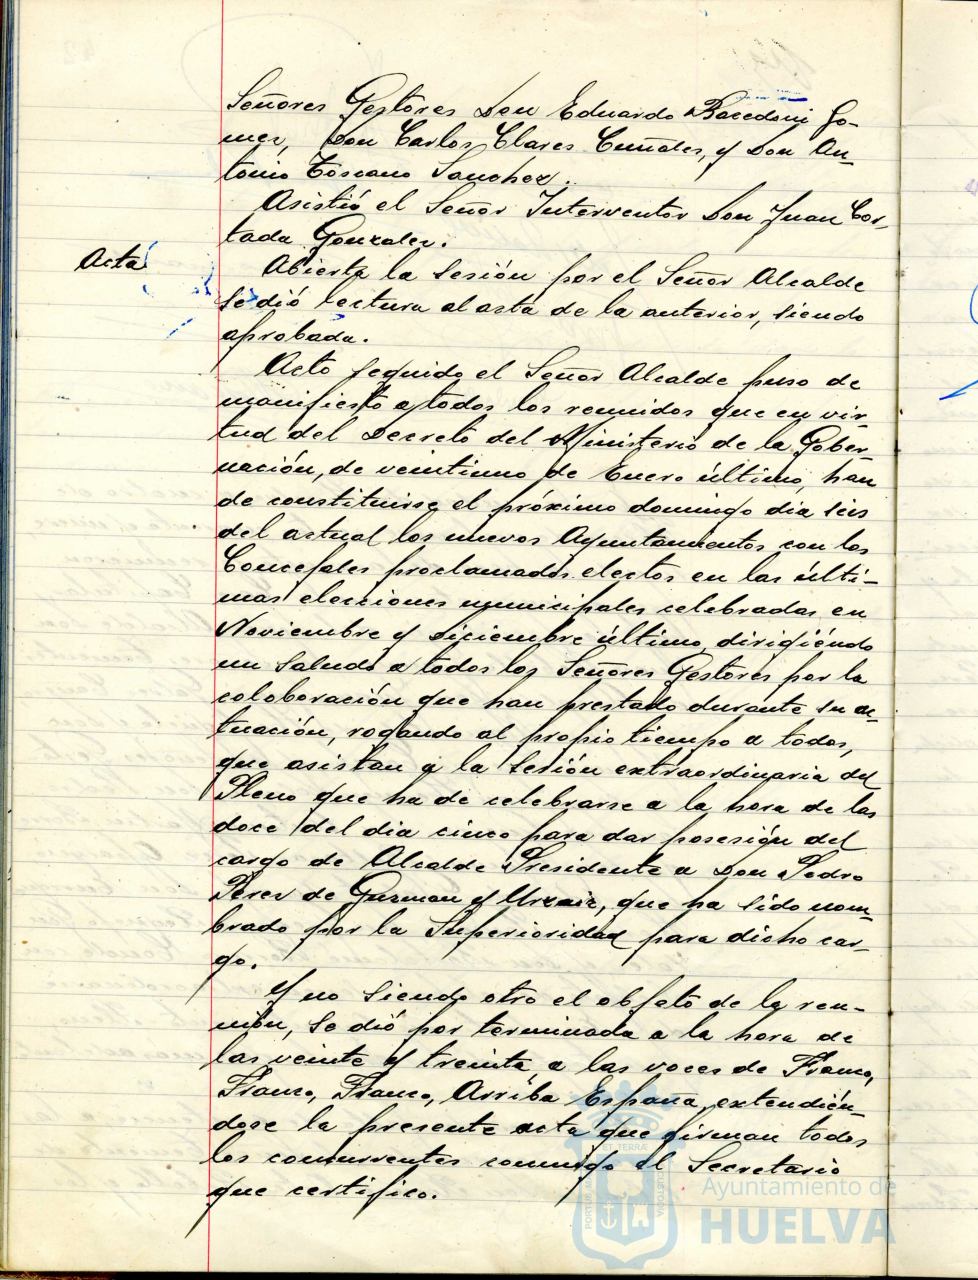 Señores Gestores Don Eduardo Bacedoni Go-
mez, Don Carlos Clares Cumbales, y Don An-
tonio Toscano Sanchez.
Asistió el Señor Interventor Don Juan Cor-
tada Gonzalez.
Acta
Abierta la Sesión por el Señor Alcalde
se dió lectura al acta de la anterior, siendo
aprobada.
Acto seguido el Señor Alcalde puso de
manifiesto a todos los reunidos que en vir-
tud del Decreto del Ministerio de la Gober-
nación, de veintiuno de Enero último, han
de constituirse el próximo domingo dia seis
del actual los nuevos Ayuntamientos con los
Concejales proclamados electos en las últi-
mas elecciones municipales celebradas en
Noviembre y diciembre último, dirigiéndo
un saludo a todos los Señores Gestores por la
coloboración que han prestado durante su ac-
tuación, rogando al propio tiempo a todos,
que asistan a la Sesión extraordinaria del
Pleno que ha de celebrarse a la hora de las
doce del dia cinco para dar posesión del
cargo de Alcalde Presidente a Don Pedro
Perez de Guzman y Urzaiz, que ha sido nom-
brado por la Superioridad para dicho car-
go.
Y no siendo otro el objeto de la reu-
nión, se dió por terminada a la hora de
las veinte y treinta, a las voces de Franco,
Franco, Franco, Arriba España, extendién-
dose la presente acta que firman todos
los concurrentes conmigo el Secretario
que certifico.
Ayuntamiento de
HUELVA